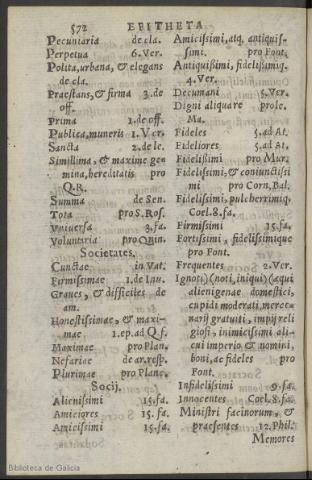 572 EPITHETA
Pecuniaria de cla.
Perpetua 6. Ver.
Polita, urbana, & elegans
de cla.
Praestans, & firma 3. de
off.
Prima 1. de off.
Publica, muneris 1. Ver.
Sancta 2. de le.
Simillima, & maxime ge-
mina, hereditatis pro
Q.R.
Summa de Sen.
Tota pro S. Ros.
Vniuersa 3. fa.
Voluntaria pro Quin.
Societates.
Cunctae in Vat.
Firmissimae 1. de Inu.
Graues, & difficiles de
am.
Honestissimae, & maxi-
mae 1. ep. ad Q. f.
Maximae pro Plan.
Nefariae de ar. resp.
Plurimae pro Planc.
Socij.
Alienissimi 15. fa.
Amiciores 15. fa.
Amicissimi 15. fa.
Amicissimi, atq. antiquis-
simi. pro Font.
Antiquißimi, fidelissimiq.
4. Ver.
Decumani 5. Ver.
Digni aliquare pro le.
Ma.
Fideles 5. ad At.
Fideliores 5. ad At.
Fidelißimi pro Mur.
Fidelissimi, & coniunctissi
mi pro Corn. Bal.
Fidelissimi, pulcherrimiq.
Coel. 8. fa.
Firmissimi 15. fa.
Fortissimi, fidelissimique
pro Font.
Frequentes 2. Ver.
Ignoti) (noti, iniqui) (aequi
alienigenae domestici,
cupidi moderati, merce-
narij gratuiti, impij reli
giosi, inimicissimi ali-
cui imperio & nomini,
boni, ac fideles pro
Font.
Infidelissimi 9. fa.
Innocentes Coel. 8. fa.
Ministri facinorum, &
praesentes 12. Phil.
Memores
Biblioteca de Galicia